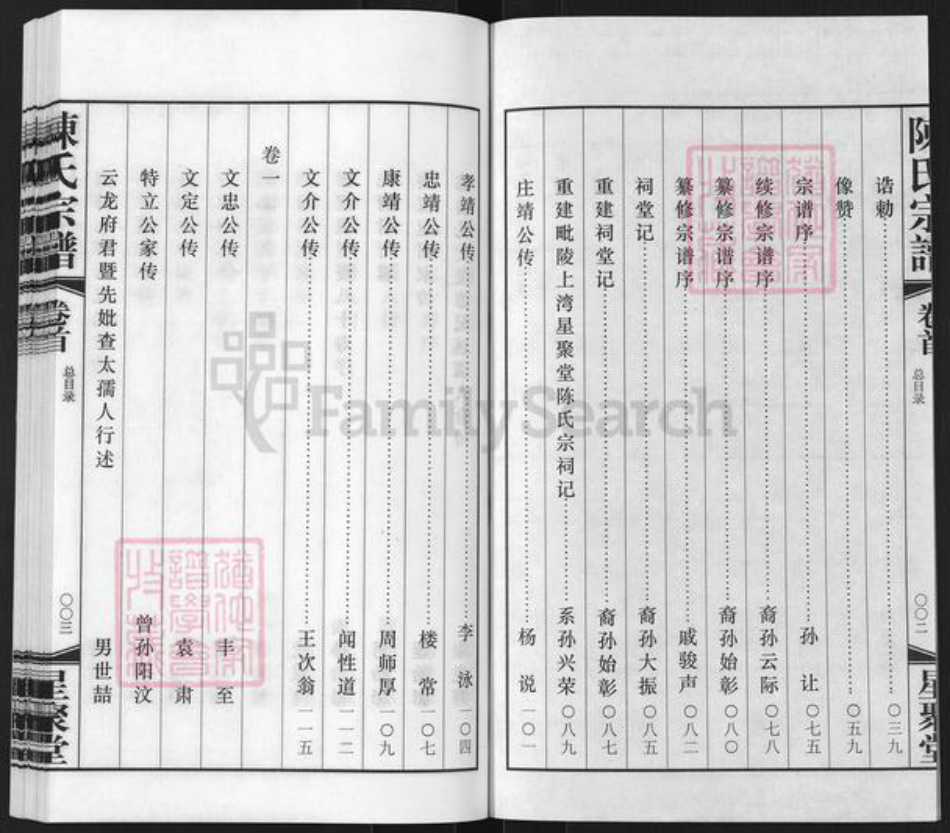 陈氏宗谱
卷首
总目录
〇〇二
星聚堂
诰勅 〇三九
像赞 〇五九
宗谱序 孙让 〇七五
续修宗谱序 裔孙云际 〇七八
纂修宗谱序 裔孙始彰 〇八〇
纂修宗谱序 戚骏声 〇八二
祠堂记 裔孙大振 〇八五
重建祠堂记 裔孙始彰 〇八七
重建毗陵上湾星聚堂陈氏宗祠记 系孙兴荣 〇八九
庄靖公传 杨说 一〇一
孝靖公传 李泳 一〇四
忠靖公传 楼常 一〇七
康靖公传 周师厚 一〇九
文介公传 闻性道 一一二
文介公传 王次翁 一一五
卷一
文忠公传 丰至
文定公传 袁肃
特立公家传 曾孙阳汶
云龙府君暨先妣查太孺人行述 男世喆
陳氏宗譜
卷首
总目录
〇〇三
星聚堂
FamilySearch